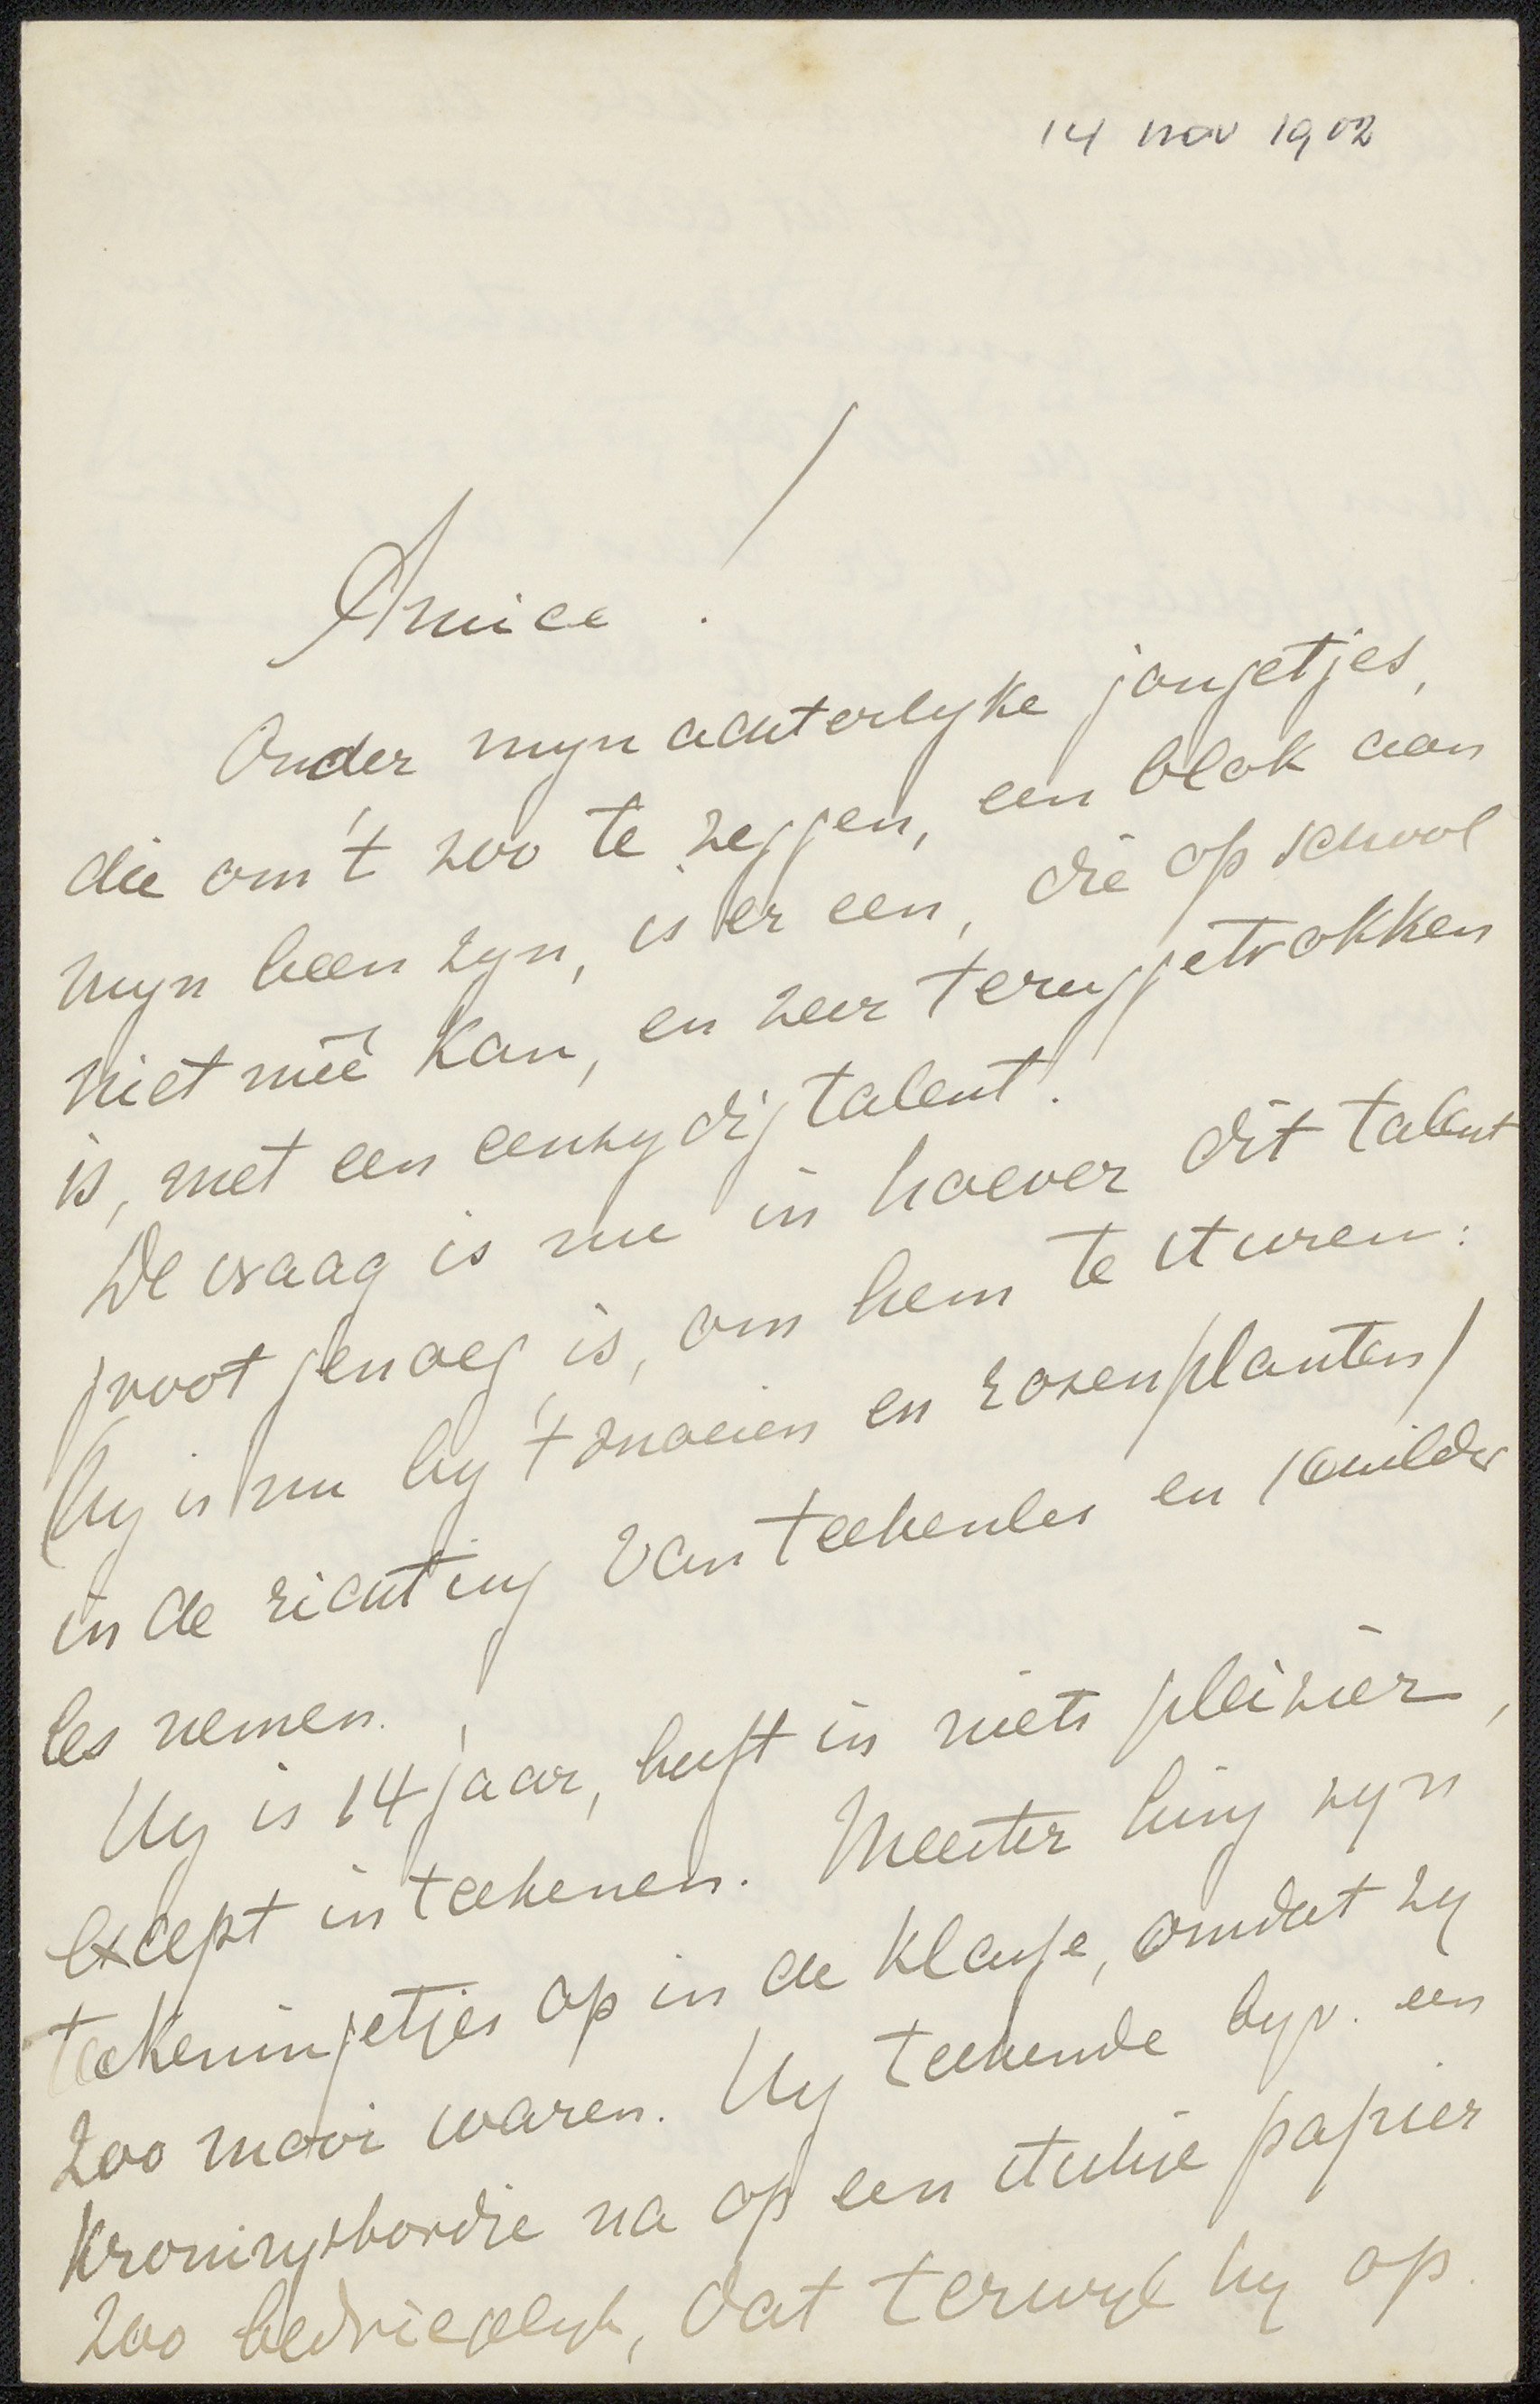 14 nov 1902
Amice!
Onder myn achterlyke jongetjes,
die om 't zoo te zeggen, een blok aan
myn been zyn, is er een, die op school
niet meê kan, en zeer teruggetrokken
is, met een eenzydig talent.
De vraag is nu in hoever dit talent
groot genoeg is, om hem te sturen:
(hy is nu by 't snoeien en rozenplanten)
in de richting van teekenles en schilder
les nemen.
Hy is 14 jaar, heeft in niets pleizier,
except in teekenen. Meester hing zyn
teekeningetjes op in de klasse, omdat zy
zoo mooi waren. Hy teekende byv. een
kroningsbordje na op een stukje papier
zoo bedriegelyk, dat terwyl hy op